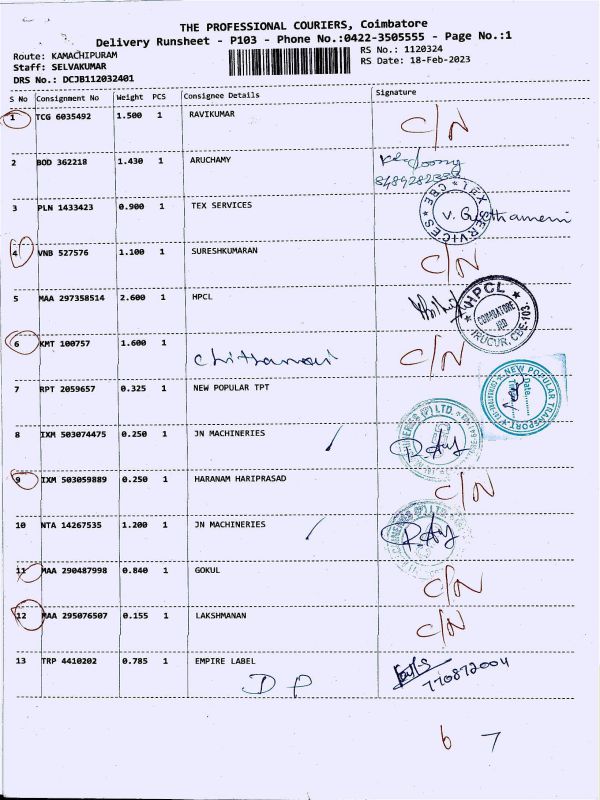 THE PROFESSIONAL COURIERS, Coimbatore
Delivery Runsheet - P103 - Phone No.:0422-3505555 - Page No.:1
Route: KAMACHIPURAM RS No.: 1120324
Staff: SELVAKUMAR RS Date: 18-Feb-2023
DRS No.: DCJB112032401
S No Consignment No Weight PCS Consignee Details Signature
1 TCG 6035492 1.500 1 RAVIKUMAR C/N
2 BOD 362218 1.430 1 ARUCHAMY
3 PLN 1433423 0.900 1 TEX SERVICES
4 VNB 527576 1.100 1 SURESHKUMARAN C/N
5 MAA 297358514 2.600 1 HPCL HPCL COIMBATORE
6 KMT 100757 1.600 1 C/N
7 RPT 2059657 0.325 1 NEW POPULAR TPT NEW POPULAR TRANSPORT
8 IXM 503074475 0.250 1 JN MACHINERIES
9 IXM 503059889 0.250 1 HARANAM HARIPRASAD C/N
10 NTA 14267535 1.200 1 JN MACHINERIES
11 MAA 290487998 0.840 1 GOKUL C/N
12 MAA 295076507 0.155 1 LAKSHMANAN C/N
13 TRP 4410202 0.785 1 EMPIRE LABEL
D P 770872004
6 7